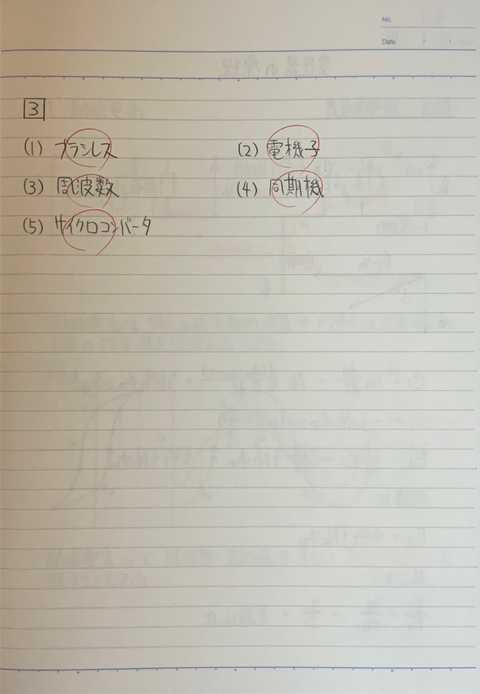 No.
Date
3
(1) ブラシレス (2) 電機子
(3) 周波数 (4) 同期機
(5) サイクロコンバータ